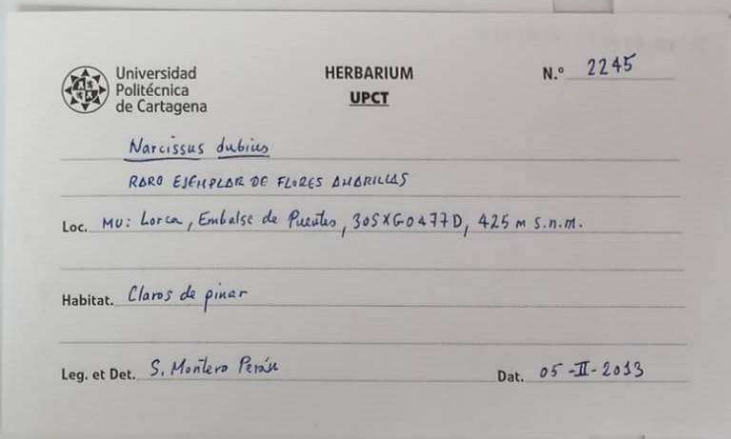 Universidad
Politécnica
de Cartagena
HERBARIUM
UPCT
N.º 2245
Narcissus dubius
RARO EJEMPLAR DE FLORES AMARILLAS
Loc. MU: Lorca, Embalse de Puentes, 30SXG0477D, 425 m s.n.m.
Habitat. Claros de pinar
Leg. et Det. S. Montero Perán
Dat. 05-II-2013